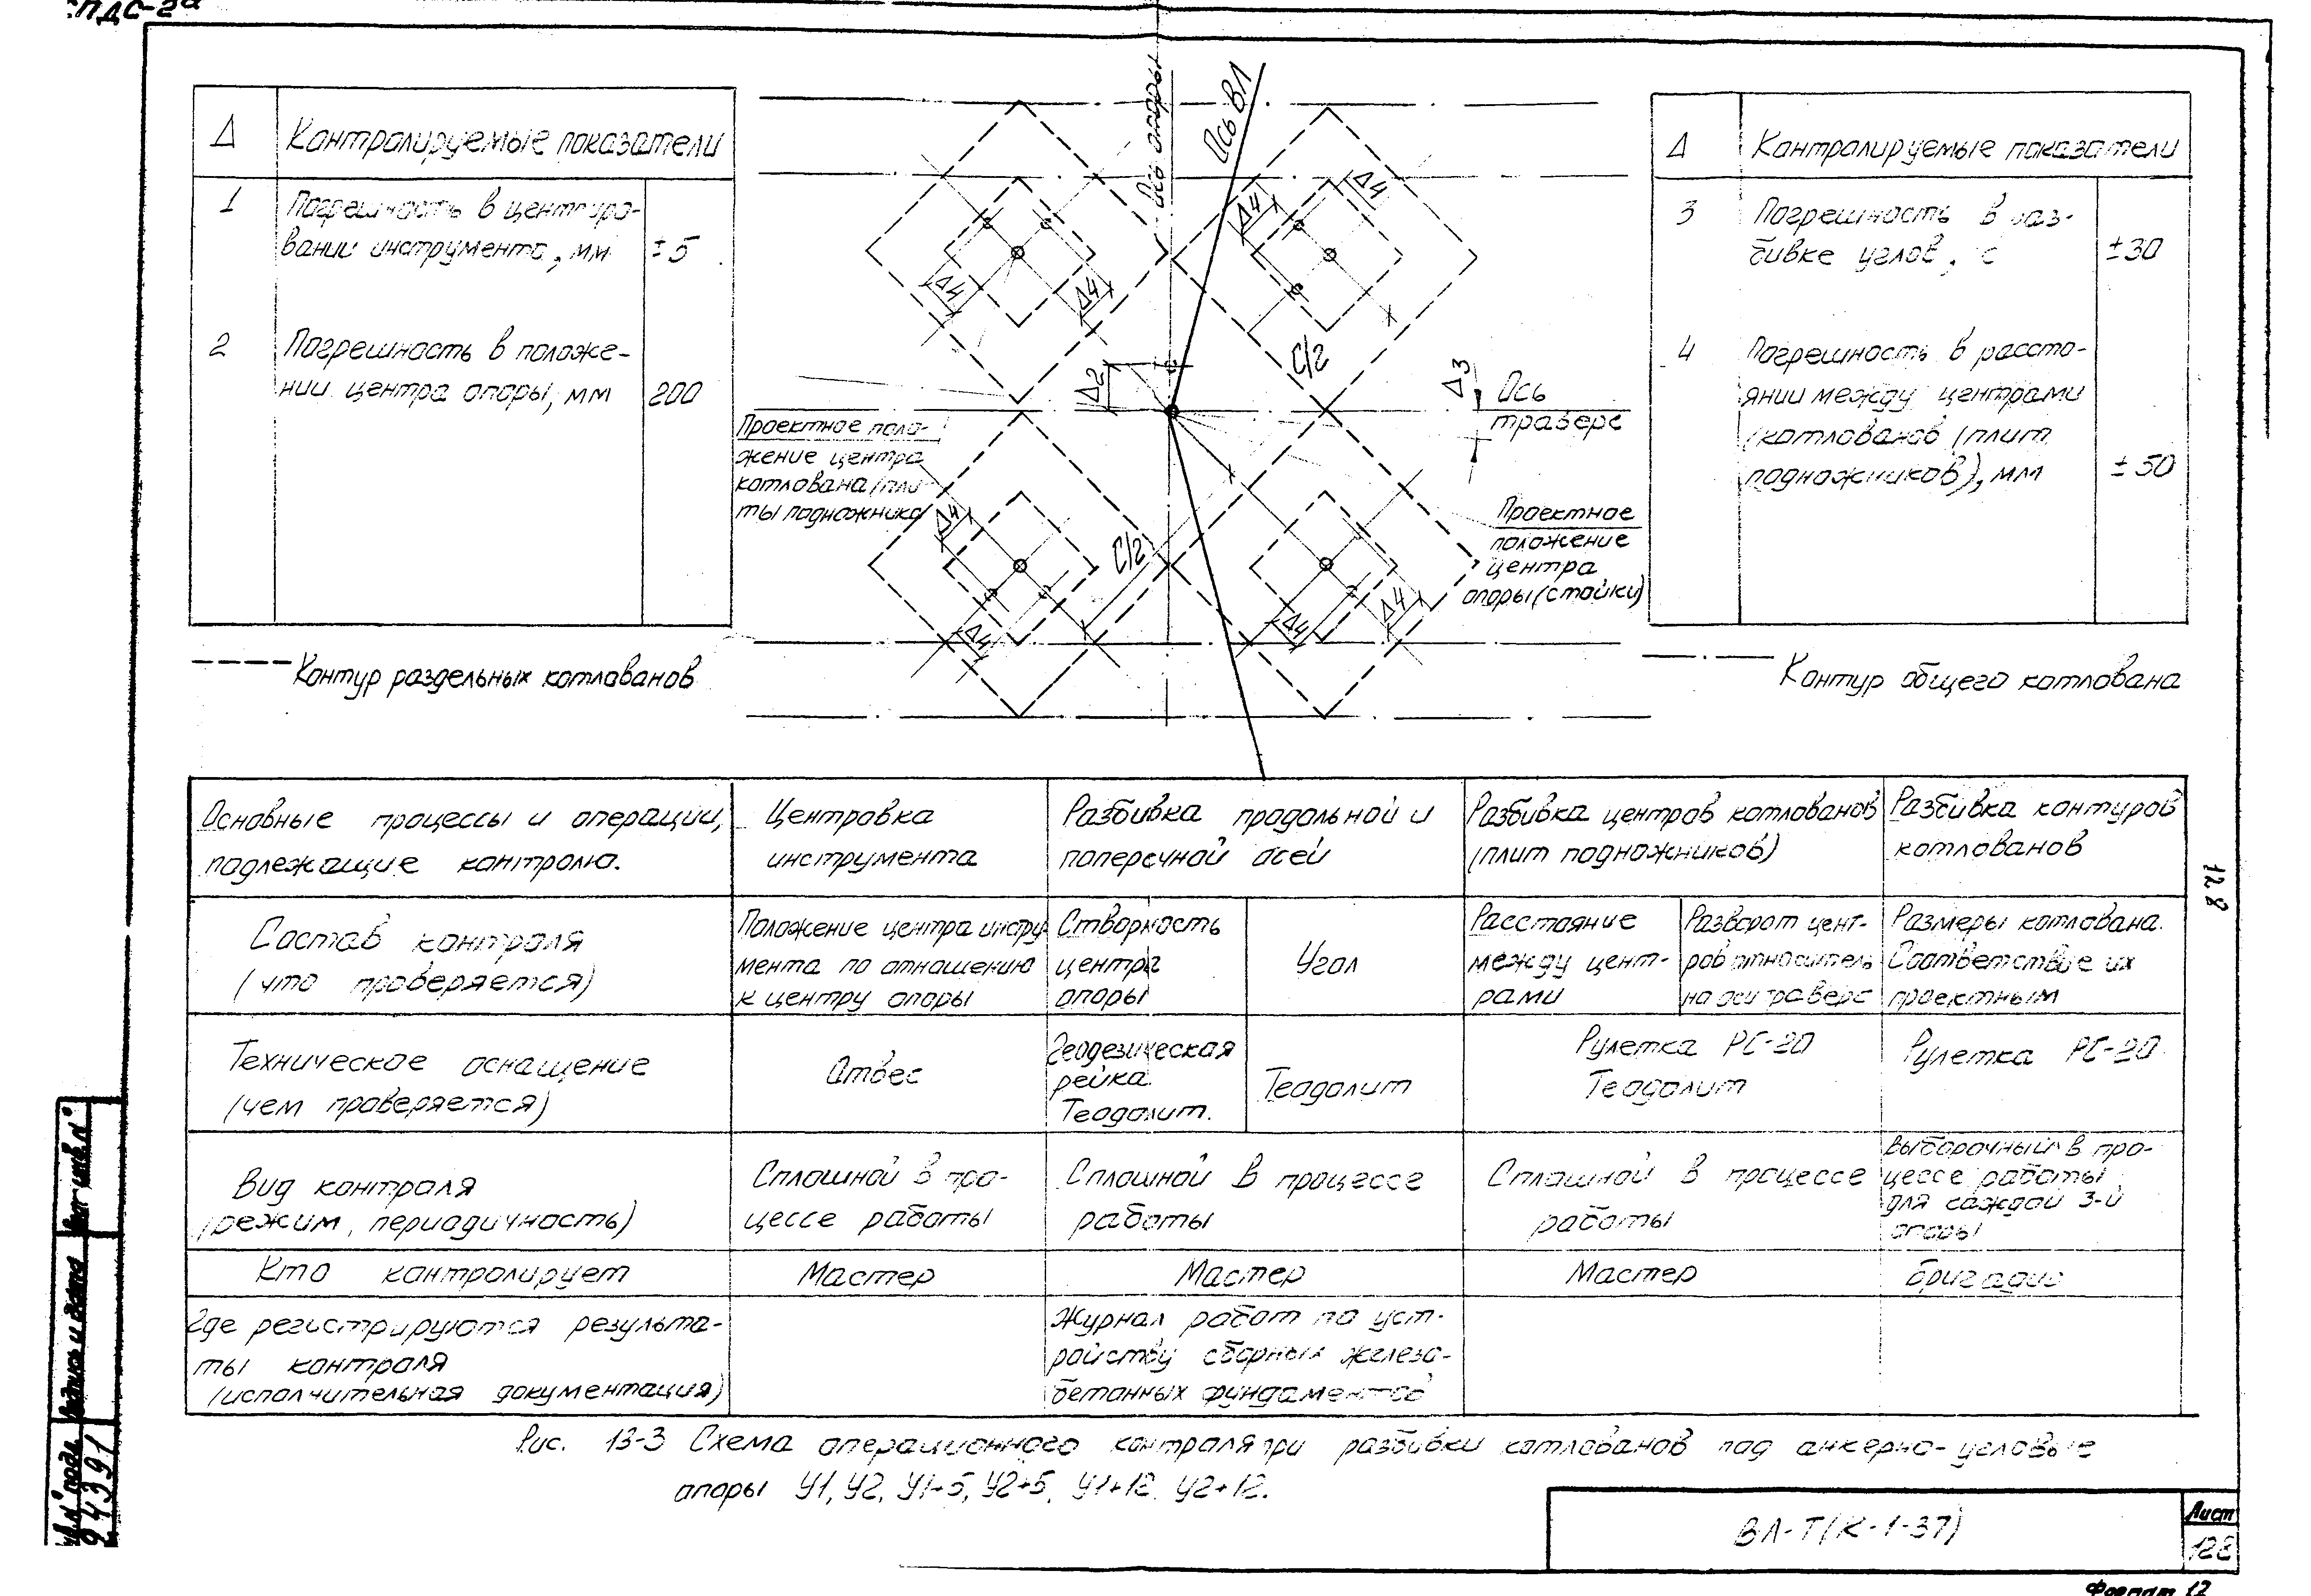 Δ Контролируемые показатели
1 Погрешность в центриро-
вании инструмента, мм ±5
2 Погрешность в положе-
нии центра опоры, мм 200
Контур раздельных котлованов
Ось опоры
Ось ВЛ
Δ4
Δ4
Δ4
Δ4
С/2
Δ2
Δ3
Ось
траверс
Проектное поло-
жение центра
котлована (пли-
ты подножника
Δ4
С/2
Δ4
Δ4
Δ4
Проектное
положение
центра
опоры (стойки)
Δ Контролируемые показатели
3 Погрешность в раз-
бивке углов, с ±30
4 Погрешность в рассто-
янии между центрами
котлованов (плит
подножников), мм ±50
Контур общего котлована
Основные процессы и операции,
подлежащие контролю.
Центровка
инструмента
Разбивка продольной и
поперечной осей
Разбивка центров котлованов
(плит подножников)
Разбивка контуров
котлованов
Состав контроля
(что проверяется)
Положение центра инстру-
мента по отношению
к центру опоры
Створность
центра
опоры
Угол
Расстояние
между цент-
рами
Разворот цент-
ров относитель
но оси траверс
Размеры котлована.
Соответствие их
проектным
Техническое оснащение
(чем проверяется)
Отвес
Геодезическая
рейка.
Теодолит.
Теодолит
Рулетка РС-20
Теодолит
Рулетка РС-20
Вид контроля
(режим, периодичность)
Сплошной в про-
цессе работы
Сплошной в процессе
работы
Сплошной в процессе
работы
Выборочный в про-
цессе работы
для каждой 3-й
опоры
Кто контролирует
Мастер
Мастер
Мастер
бригадир
Где регистрируются результа-
ты контроля
(исполнительная документация)
Журнал работ по уст-
ройству сборных железо-
бетонных фундаментов
Рис. 13-3 Схема операционного контроля при разбивки котлованов под анкерно-угловые
опоры У1, У2, У1+5, У2+5, У1+12, У2+12.
ВЛ-Т(К-1-37)
Лист
128
128
Формат 12
Подпись и дата
24391